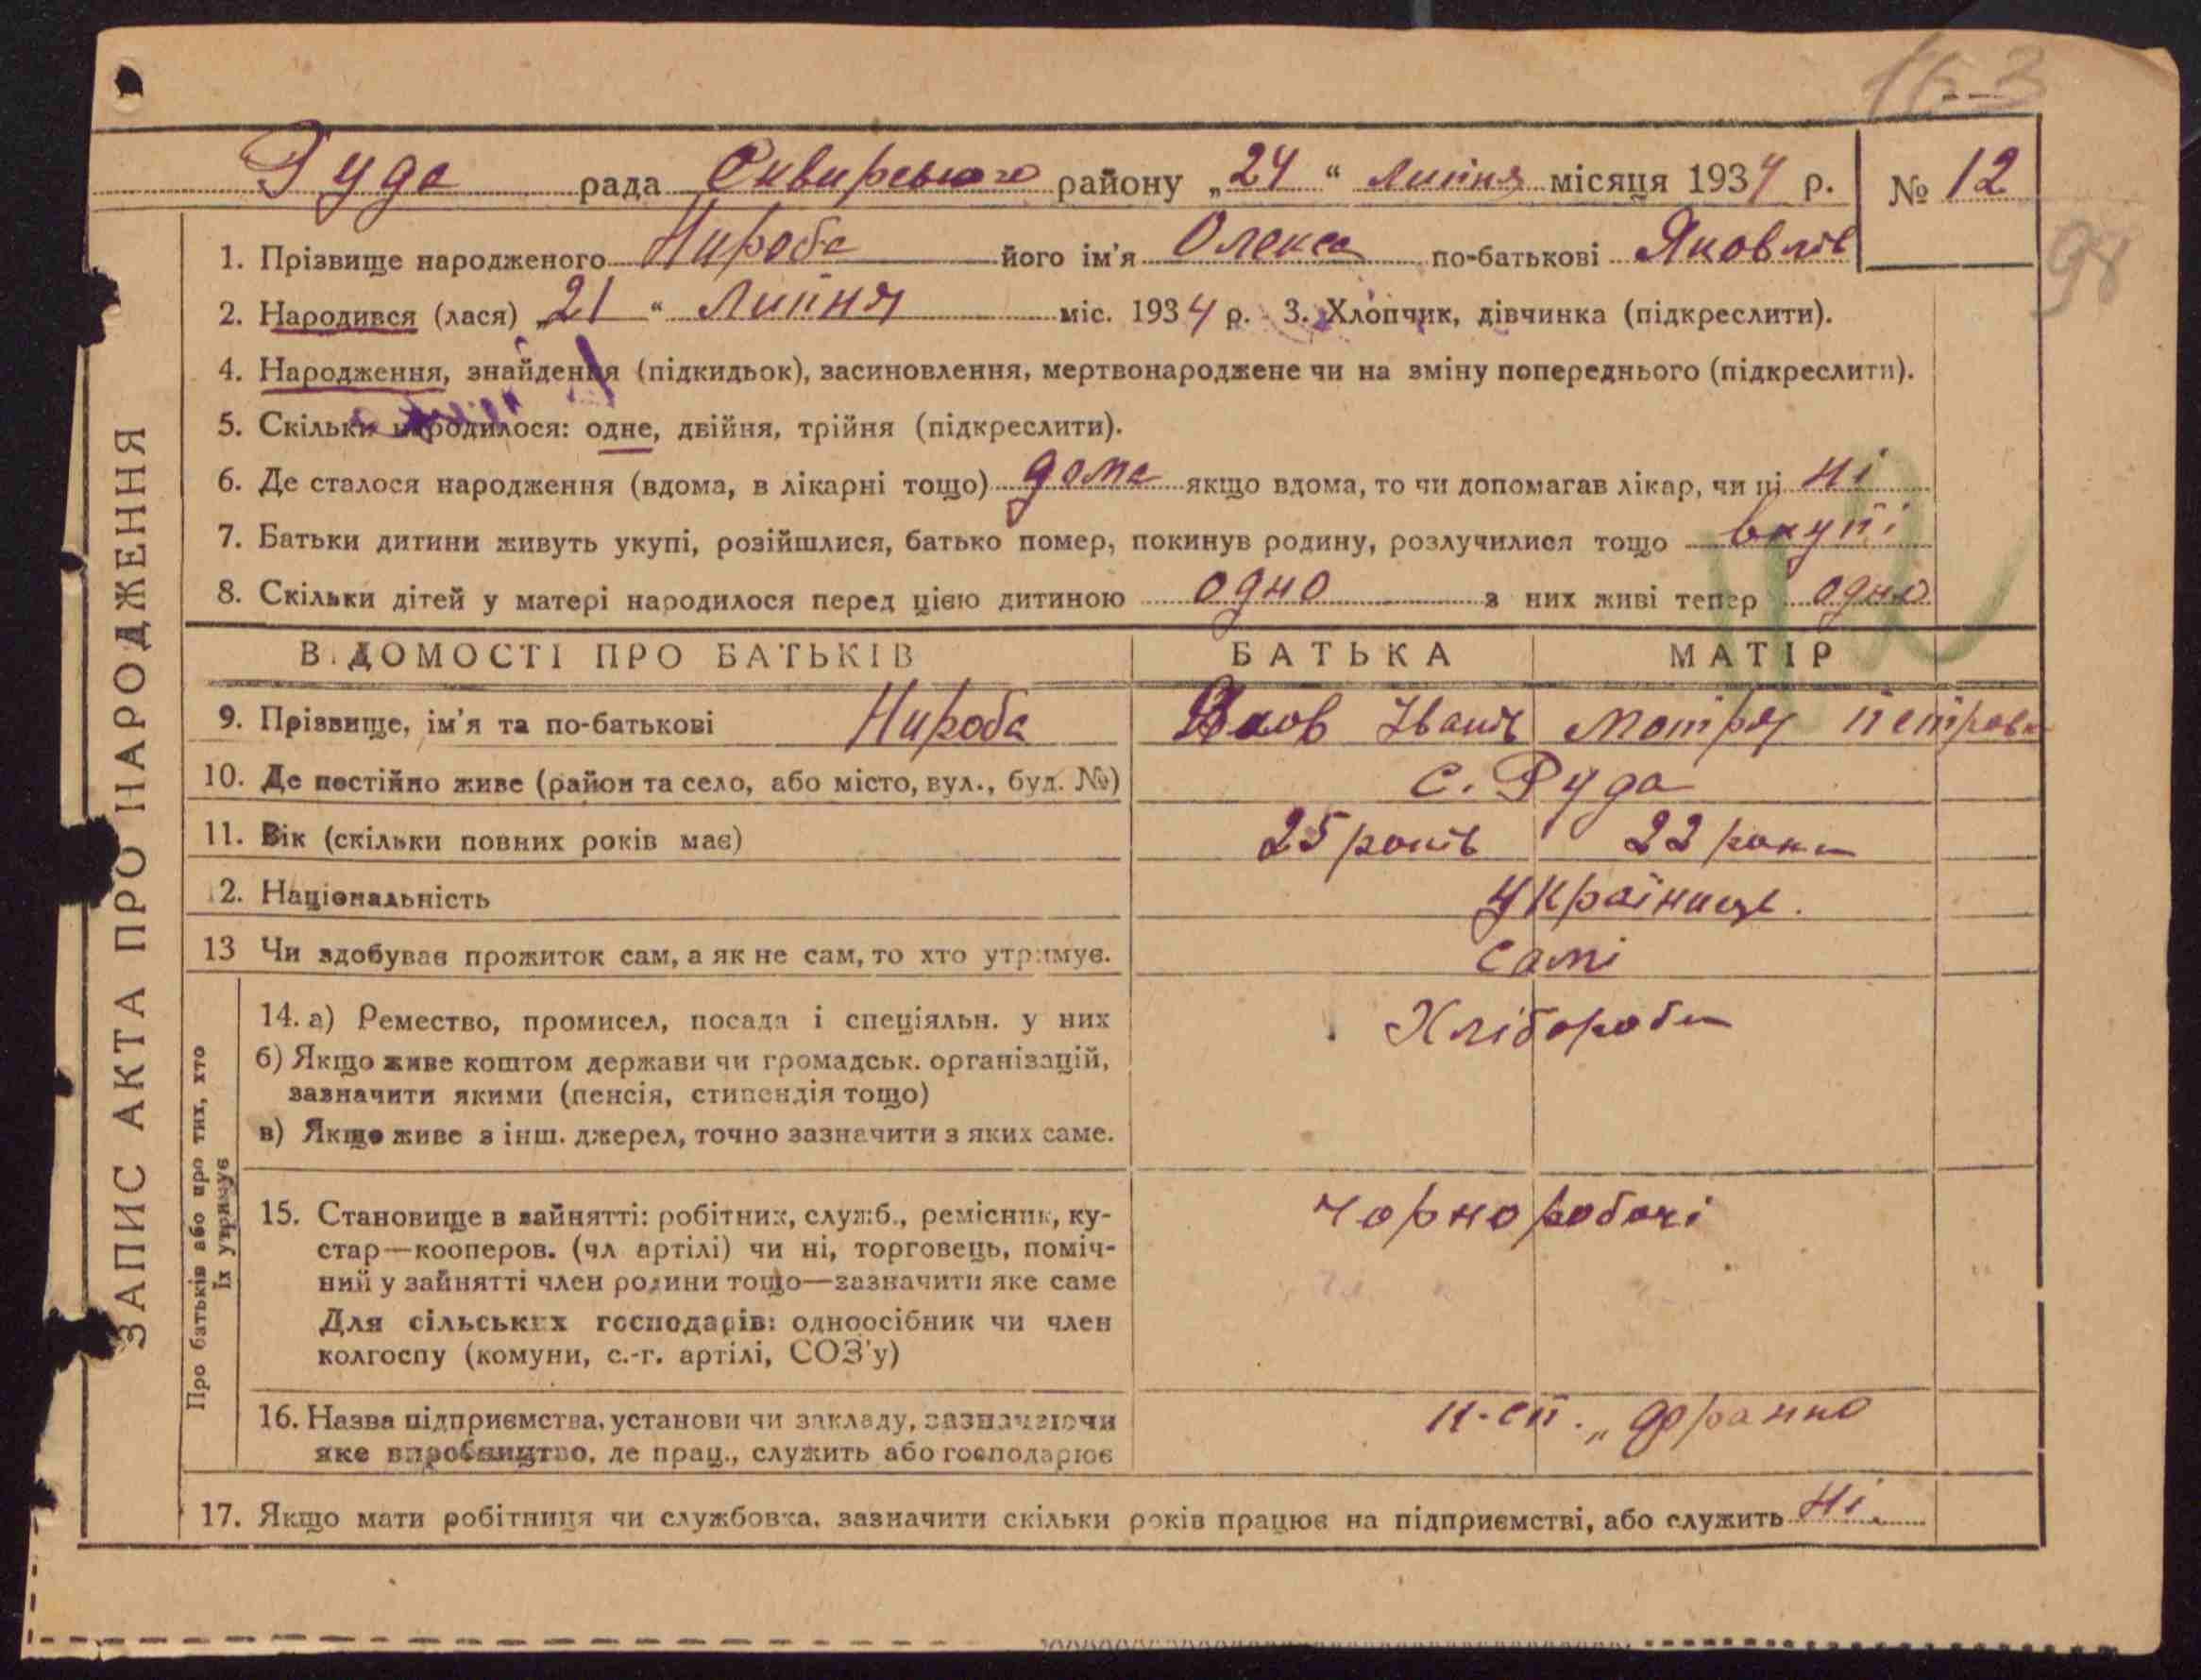 163
Руда рада Сквирського району „24“ липня місяця 1934 р. № 12
98
1. Прізвище народженого Нироба його ім'я Олекса по-батькові Яковлів
2. Народився (лася) „21“ липня міс. 1934 р. 3. Хлопчик, дівчинка (підкреслити).
4. Народження, знайдення (підкидьок), засиновлення, мертвонароджене чи на зміну попереднього (підкреслити).
5. Скільки народилося: одне, двійня, трійня (підкреслити).
6. Де сталося народження (вдома, в лікарні тощо) дома якщо вдома, то чи допомагав лікар, чи ні ні
7. Батьки дитини живуть укупі, розійшлися, батько помер, покинув родину, розлучилися тощо вкупі
8. Скільки дітей у матері народилося перед цією дитиною одно з них живі тепер одно
ЗАПИС АКТА ПРО НАРОДЖЕННЯ
ВІДОМОСТІ ПРО БАТЬКІВ БАТЬКА МАТІР
9. Прізвище, ім'я та по-батькові Нироба Яков Іванів Мотря Петровн
10. Де постійно живе (район та село, або місто, вул., буд. №) с. Руда
11. Вік (скільки повних років має) 25 років 22 роки
12. Національність українці.
13 Чи здобуває прожиток сам, а як не сам, то хто утримує. самі
Про батьків або про тих, хто
їх утримує
14. а) Ремество, промисел, посада і спеціяльн. у них Хлібороби
б) Якщо живе коштом держави чи громадськ. організацій,
зазначити якими (пенсія, стипендія тощо)
в) Якщо живе з інш. джерел, точно зазначити з яких саме.
15. Становище в зайнятті: робітник, служб., ремісник, ку- чорноробочі
стар—кооперов. (чл артілі) чи ні, торговець, поміч-
ний у зайнятті член родини тощо—зазначити яке саме
Для сільських господарів: одноосібник чи член
колгоспу (комуни, с.-г. артілі, СОЗ'у)
16. Назва підприємства, установи чи закладу, зазначаючи
яке виробництво, де прац., служить або господарює
17. Якщо мати робітниця чи службовка, зазначити скільки років працює на підприємстві, або служить ні